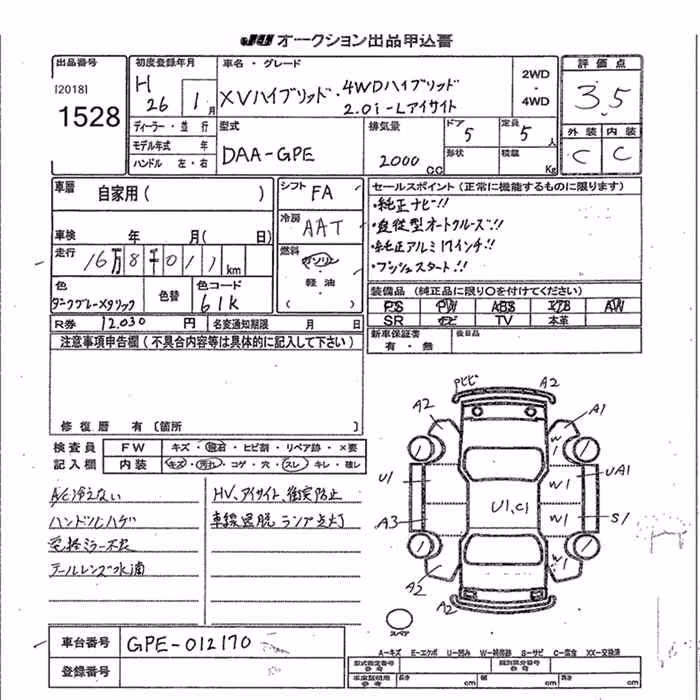 JU オークション出品申込書
出品番号
[2018]
1528
初度登録年月
H 26年 1月
ディーラー・並 行
モデル年式 年
ハンドル 左・右
車名・グレード
XVハイブリッド 4WDハイブリッド
2.0i-Lアイサイト
2WD
・
4WD
型式
DAA-GPE
排気量
2000 cc
ドア 5
定員 5 人
形状
積載 Kg
評価点
3.5
外装 内装
C C
車歴 自家用( )
車検 年 月( 日)
走行 16万8千011 km
色
ダークグレーメタリック
色替
色コード
61K
シフト FA
冷房 AAT
燃料 ガソリン
・
軽油
( )
R券 12,030 円 名変通知期限 月 日
セールスポイント (正常に機能するものに限ります)
・純正ナビ!!
・追従型オートクルーズ!!
・純正アルミ17インチ!!
・プッシュスタート!!
装備品 (純正品に限り○を付けてください)
PS PW ABS エアB AW
SR ナビ TV 本革
新車保証書
有・無
後日品
注意事項申告欄(不具合内容等は具体的に記入して下さい)
修復歴 有〔箇所 〕
検査員
記入欄
FW キズ・飛石・ヒビ割・リペア跡・×要
内装 キズ・汚れ・コゲ・穴・スレ・キレ・破レ
A/C冷えない
ハンドルハゲ
電格ミラー不良
テールレンズ水滴
HV、アイサイト、衝突防止
車線逸脱 ランプ点灯
車台番号 GPE-012170
登録番号
トビヒビ A2
A2 A1
W1
U1 W1 UA1
U1,C1
A3 W1 S1
W1
A2
A2
スペア
A-キズ E-エクボ U-凹み W-補修跡 S-サビ C-腐食 XX-交換済
型式指定番号
参考
類別区分番号
参考
車庫証明用
参考
長さ cm 幅 cm 高さ cm